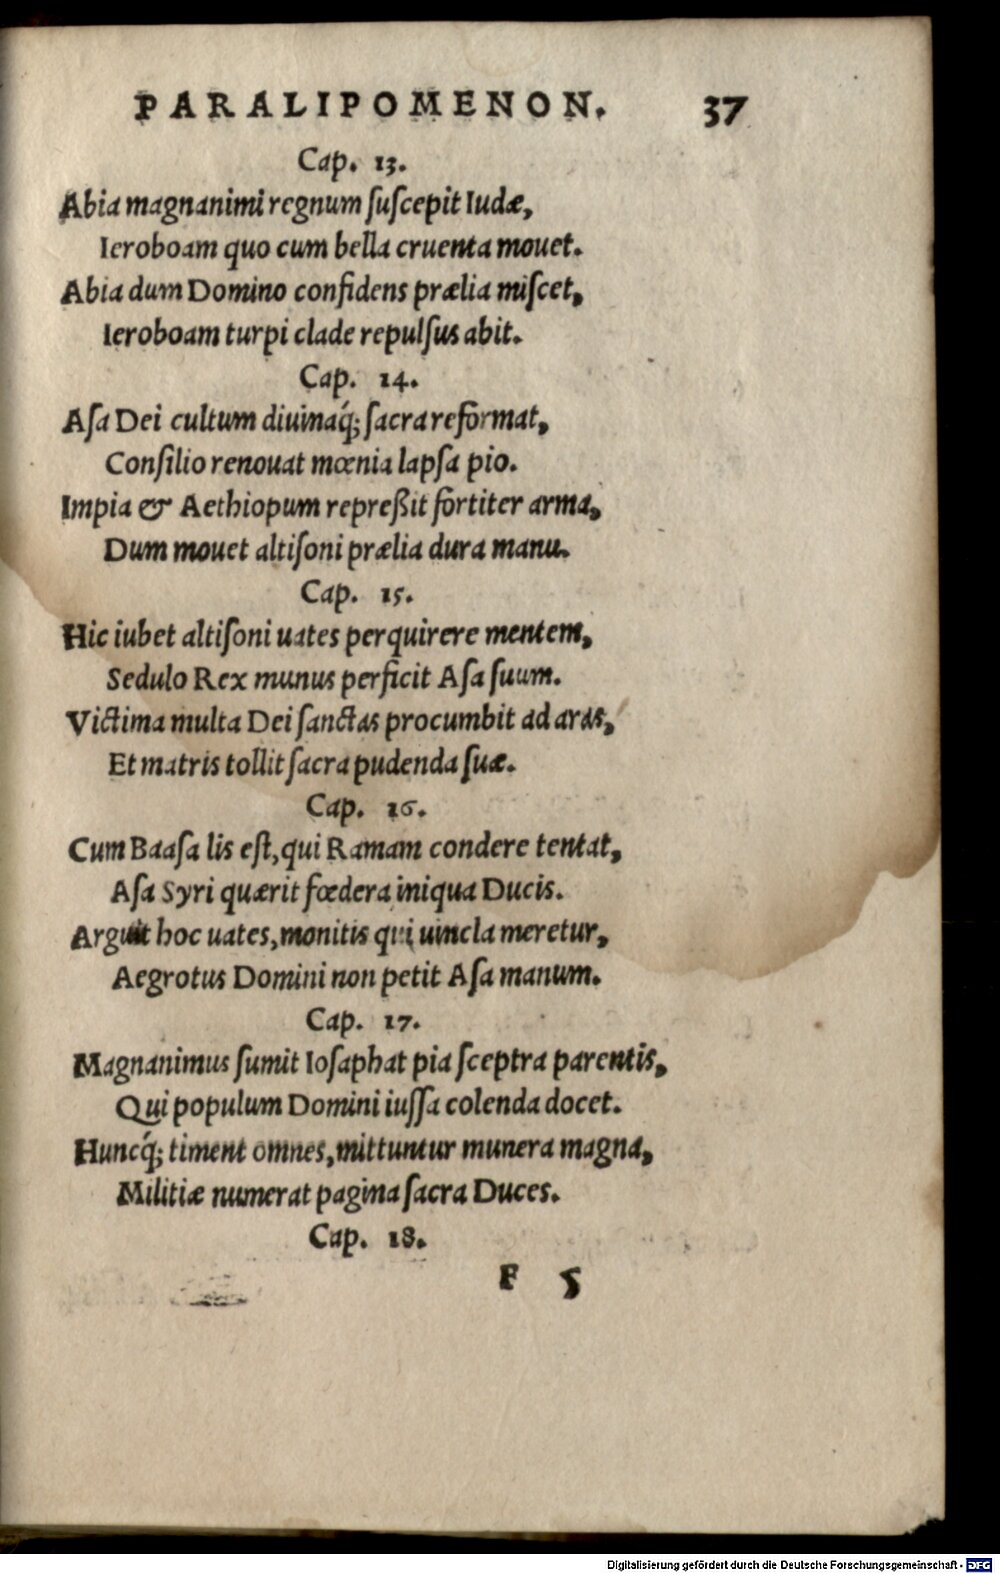 PARALIPOMENON. 37
Cap. 13.
Abia magnanimi regnum ſuſcepit Iudæ,
Ieroboam quo cum bella cruenta mouet.
Abia dum Domino confidens prælia miſcet,
Ieroboam turpi clade repulſus abit.
Cap. 14.
Aſa Dei cultum diuinaq́; ſacra reformat,
Conſilio renouat mœnia lapſa pio.
Impia & Aethiopum repreßit fortiter arma,
Dum mouet altiſoni prælia dura manu.
Cap. 15.
Hic iubet altiſoni uates perquirere mentem,
Sedulo Rex munus perficit Aſa ſuum.
Victima multa Dei ſanctas procumbit ad aras,
Et matris tollit ſacra pudenda ſuæ.
Cap. 16.
Cum Baaſa lis eſt, qui Ramam condere tentat,
Aſa Syri quærit fœdera iniqua Ducis.
Arguit hoc uates, monitis qui uincla meretur,
Aegrotus Domini non petit Aſa manum.
Cap. 17.
Magnanimus ſumit Ioſaphat pia ſceptra parentis,
Qui populum Domini iuſſa colenda docet.
Huncq́; timent omnes, mittuntur munera magna,
Militiæ numerat pagina ſacra Duces.
Cap. 18.
F 5
Digitalisierung gefördert durch die Deutsche Forschungsgemeinschaft - DFG